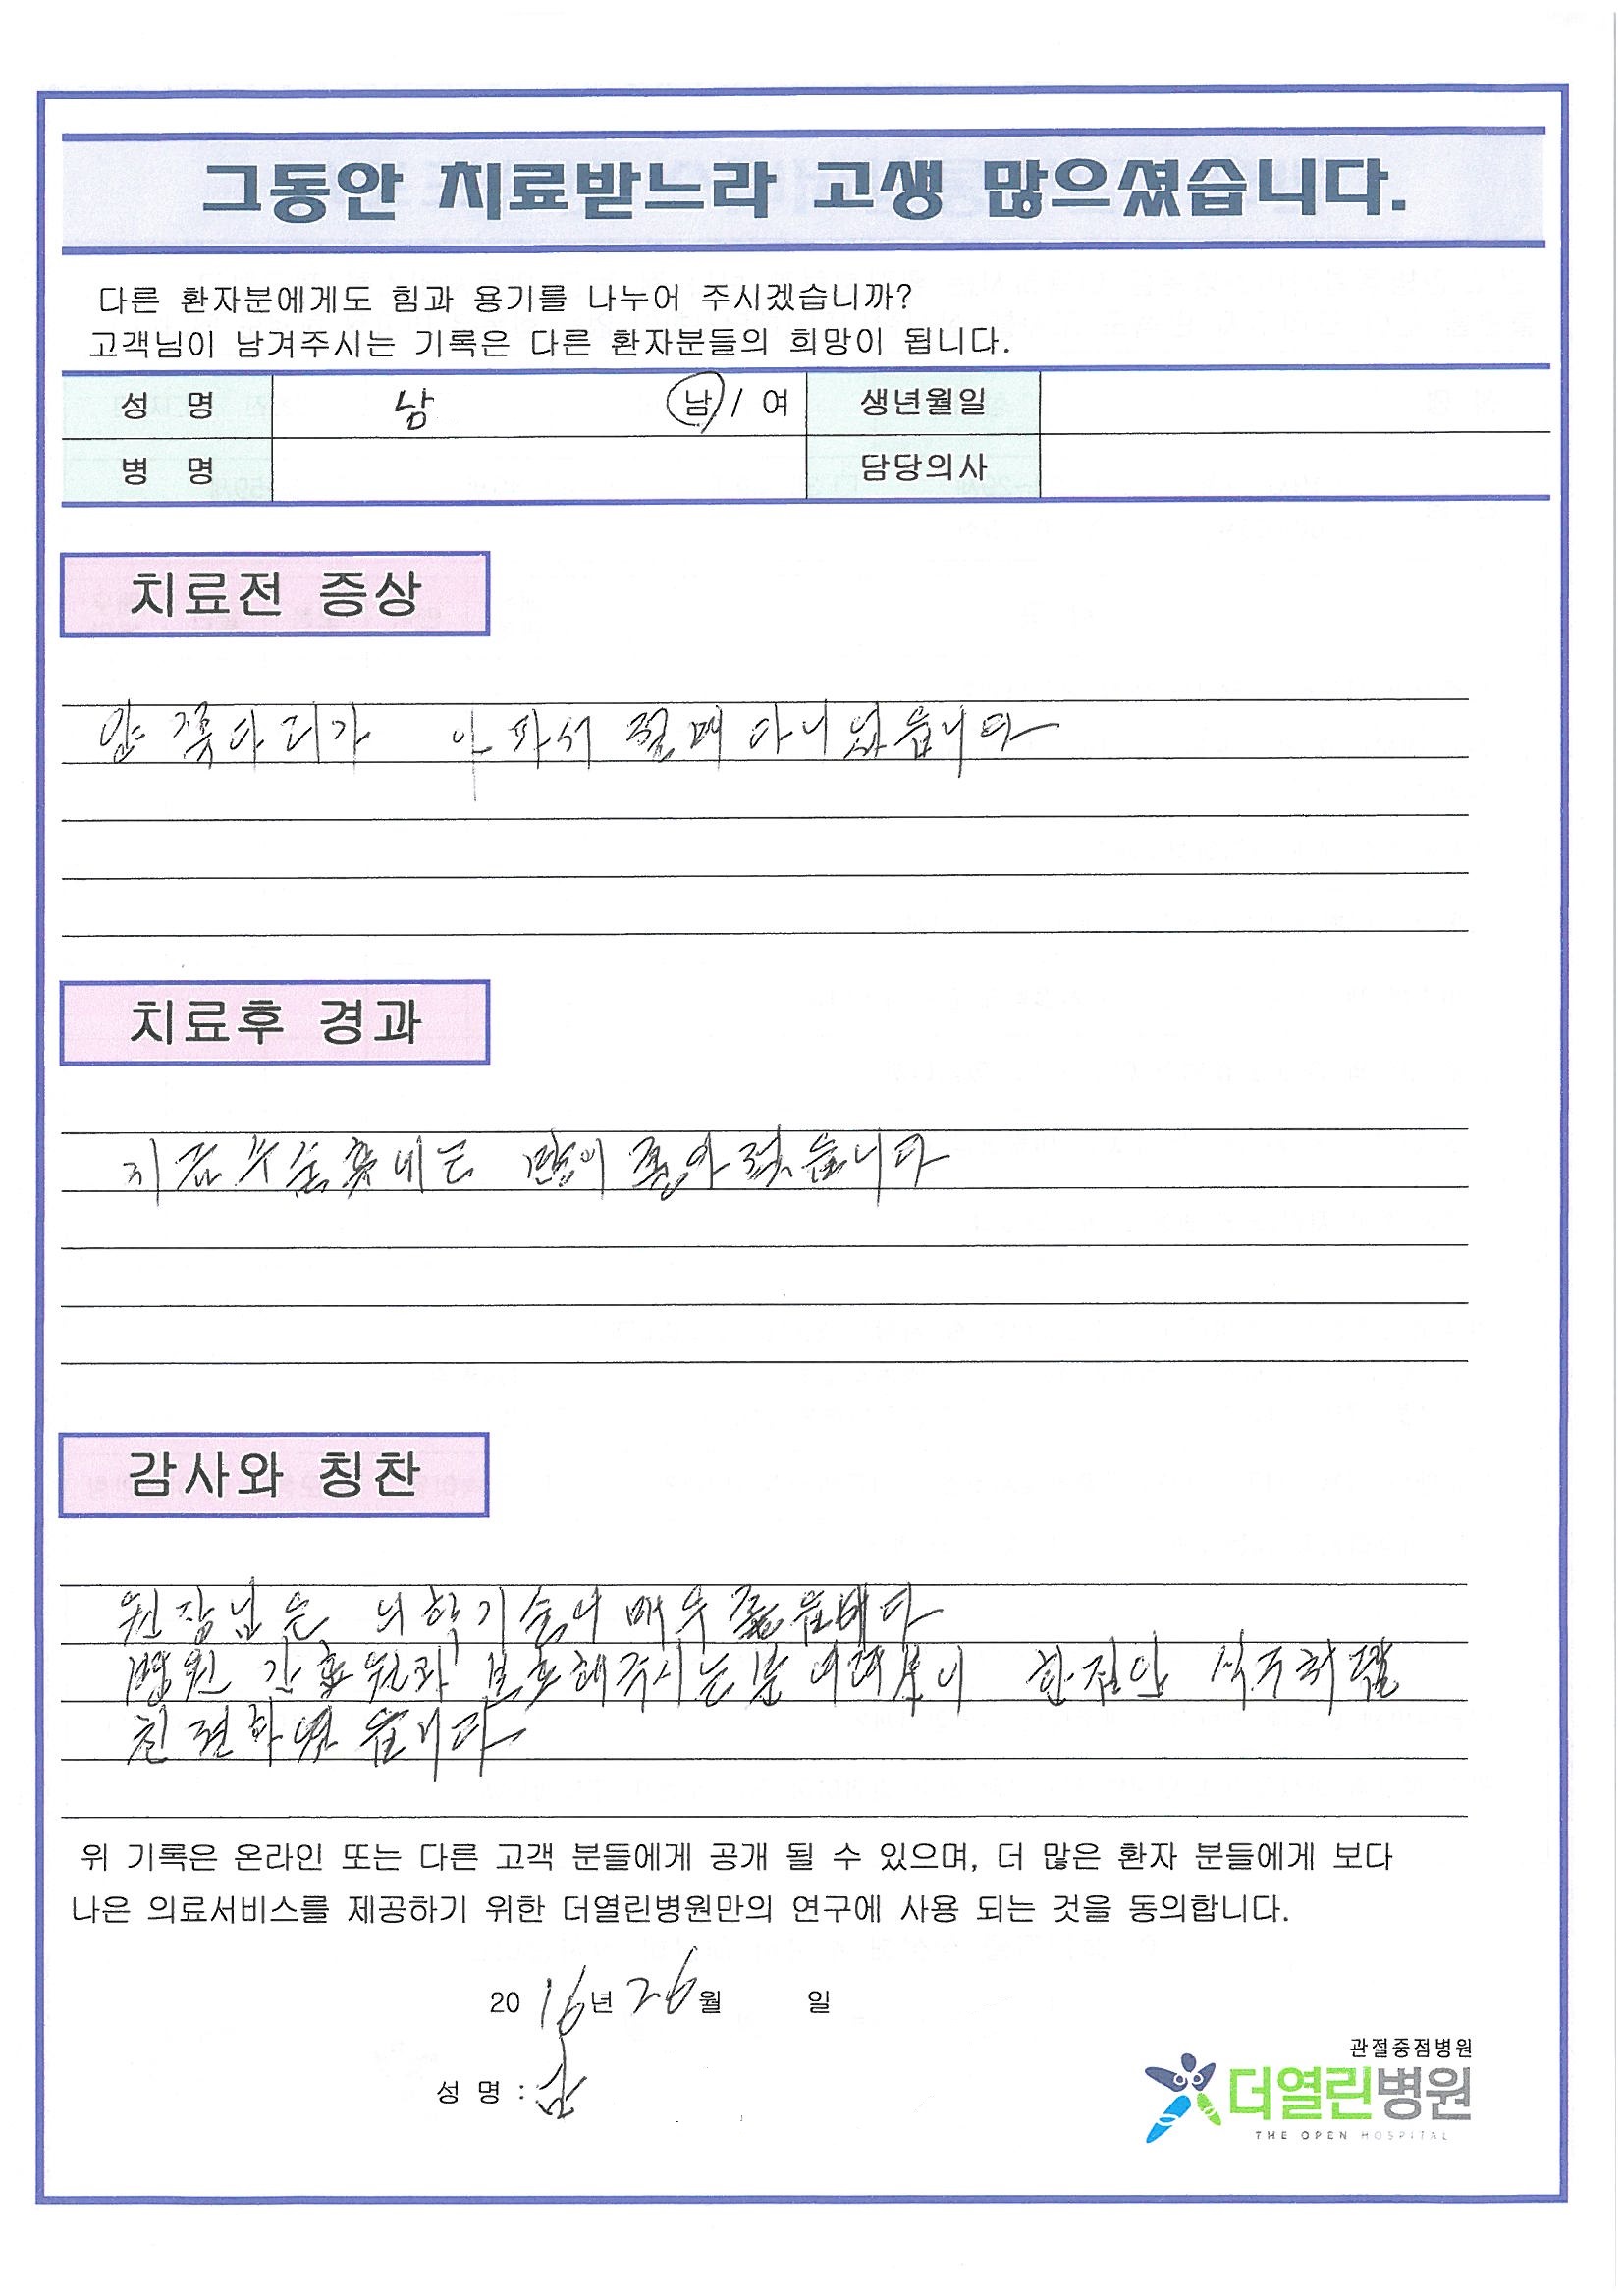 그동안 치료받느라 고생 많으셨습니다.
다른 환자분에게도 힘과 용기를 나누어 주시겠습니까?
고객님이 남겨주시는 기록은 다른 환자분들의 희망이 됩니다.
성 명 남 남 / 여 생년월일
병 명 담당의사
치료전 증상
양쪽다리가 아파서 절며 다니었읍니다
치료후 경과
지금수술후에는 많이 좋아졌읍니다
감사와 칭찬
원장님은 의학기술이 매우
병원 간호원과 보호해주시는분 한집안 식구처럼
친절하였읍니다
위 기록은 온라인 또는 다른 고객 분들에게 공개 될 수 있으며, 더 많은 환자 분들에게 보다
나은 의료서비스를 제공하기 위한 더열린병원만의 연구에 사용 되는 것을 동의합니다.
20 16년 26월 일
성 명 : 남
관절중점병원
더열린병원
THE OPEN HOSPITAL